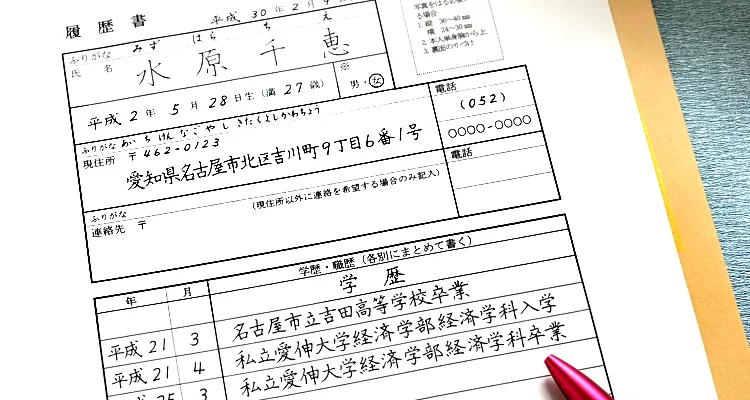 履歴書 平成30年2月9
写真をはる必要
る場合
1. 縦 36~40㎜
横 24~30㎜
2. 本人単身胸から上
3. 裏面のりづけ
ふりがな みず はら ち え
氏名 水原千恵
平成2年5月28日生(満27歳) ※ 男・女
ふりがな あいちけんなごやしきたくよしかわちょう
現住所 〒462-0123
愛知県名古屋市北区吉川町9丁目6番1号
電話
(052)
○○○○-○○○○
ふりがな
連絡先 〒 (現住所以外に連絡を希望する場合のみ記入)
電話
年 月 学歴・職歴(各別にまとめて書く)
学歴
平成21 3 名古屋市立吉田高等学校卒業
平成21 4 私立愛伸大学経済学部経済学科入学
25 3 私立愛伸大学経済学部経済学科卒業